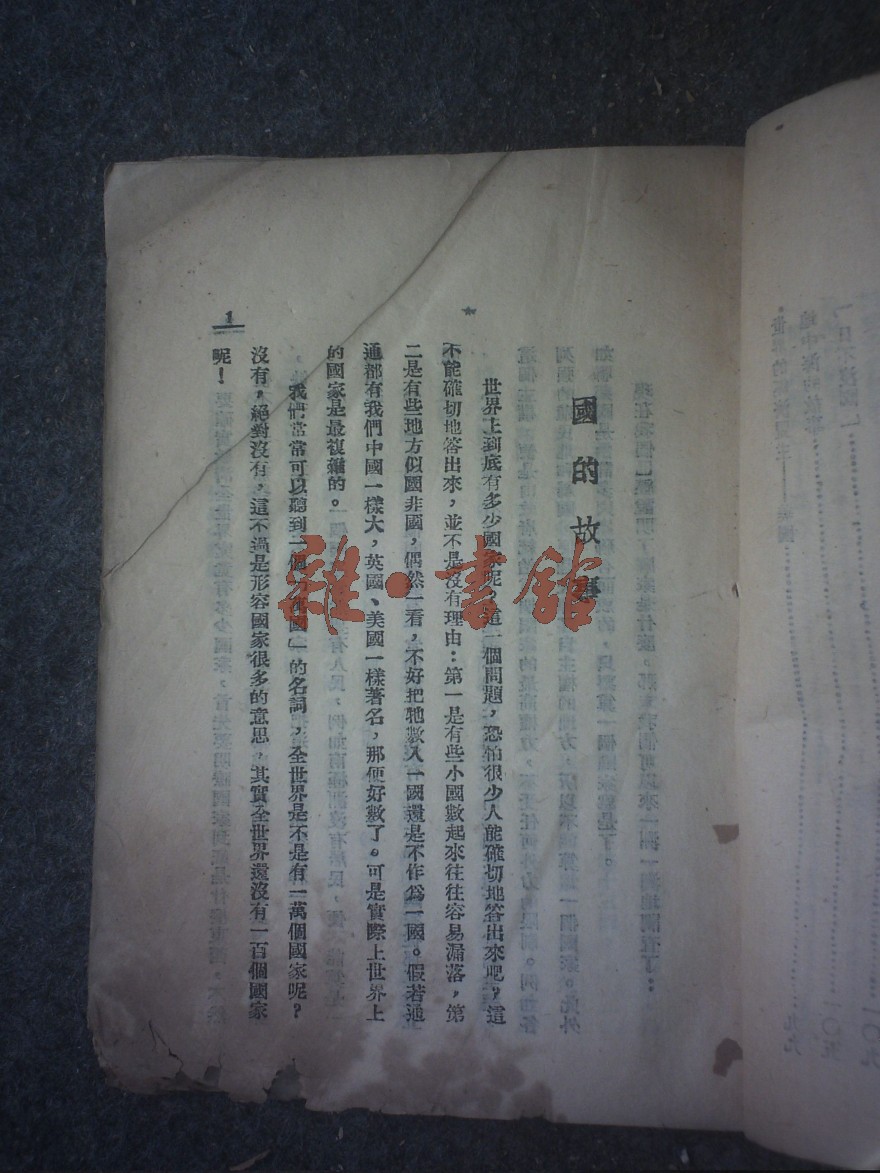 國的故事
世界上到底有多少國家呢?這一個問題,恐怕很少人能確切地答出來吧,這
不能確切地答出來,並不是沒有理由:第一是有些小國數起來往往容易漏落,第
二是有些地方似國非國,偶然一看,不好把牠數入一國還是不作爲一國。假若通
通都有我們中國一樣大,英國、美國一樣著名,那便好數了。可是實際上世界上
的國家是最複雜的。
我們常常可以聽到一個「萬國」的名詞,全世界是不是有一萬個國家呢?
沒有,絕對沒有,這不過是形容國家很多的意思,其實全世界還沒有一百個國家
呢!
1
雜·書館